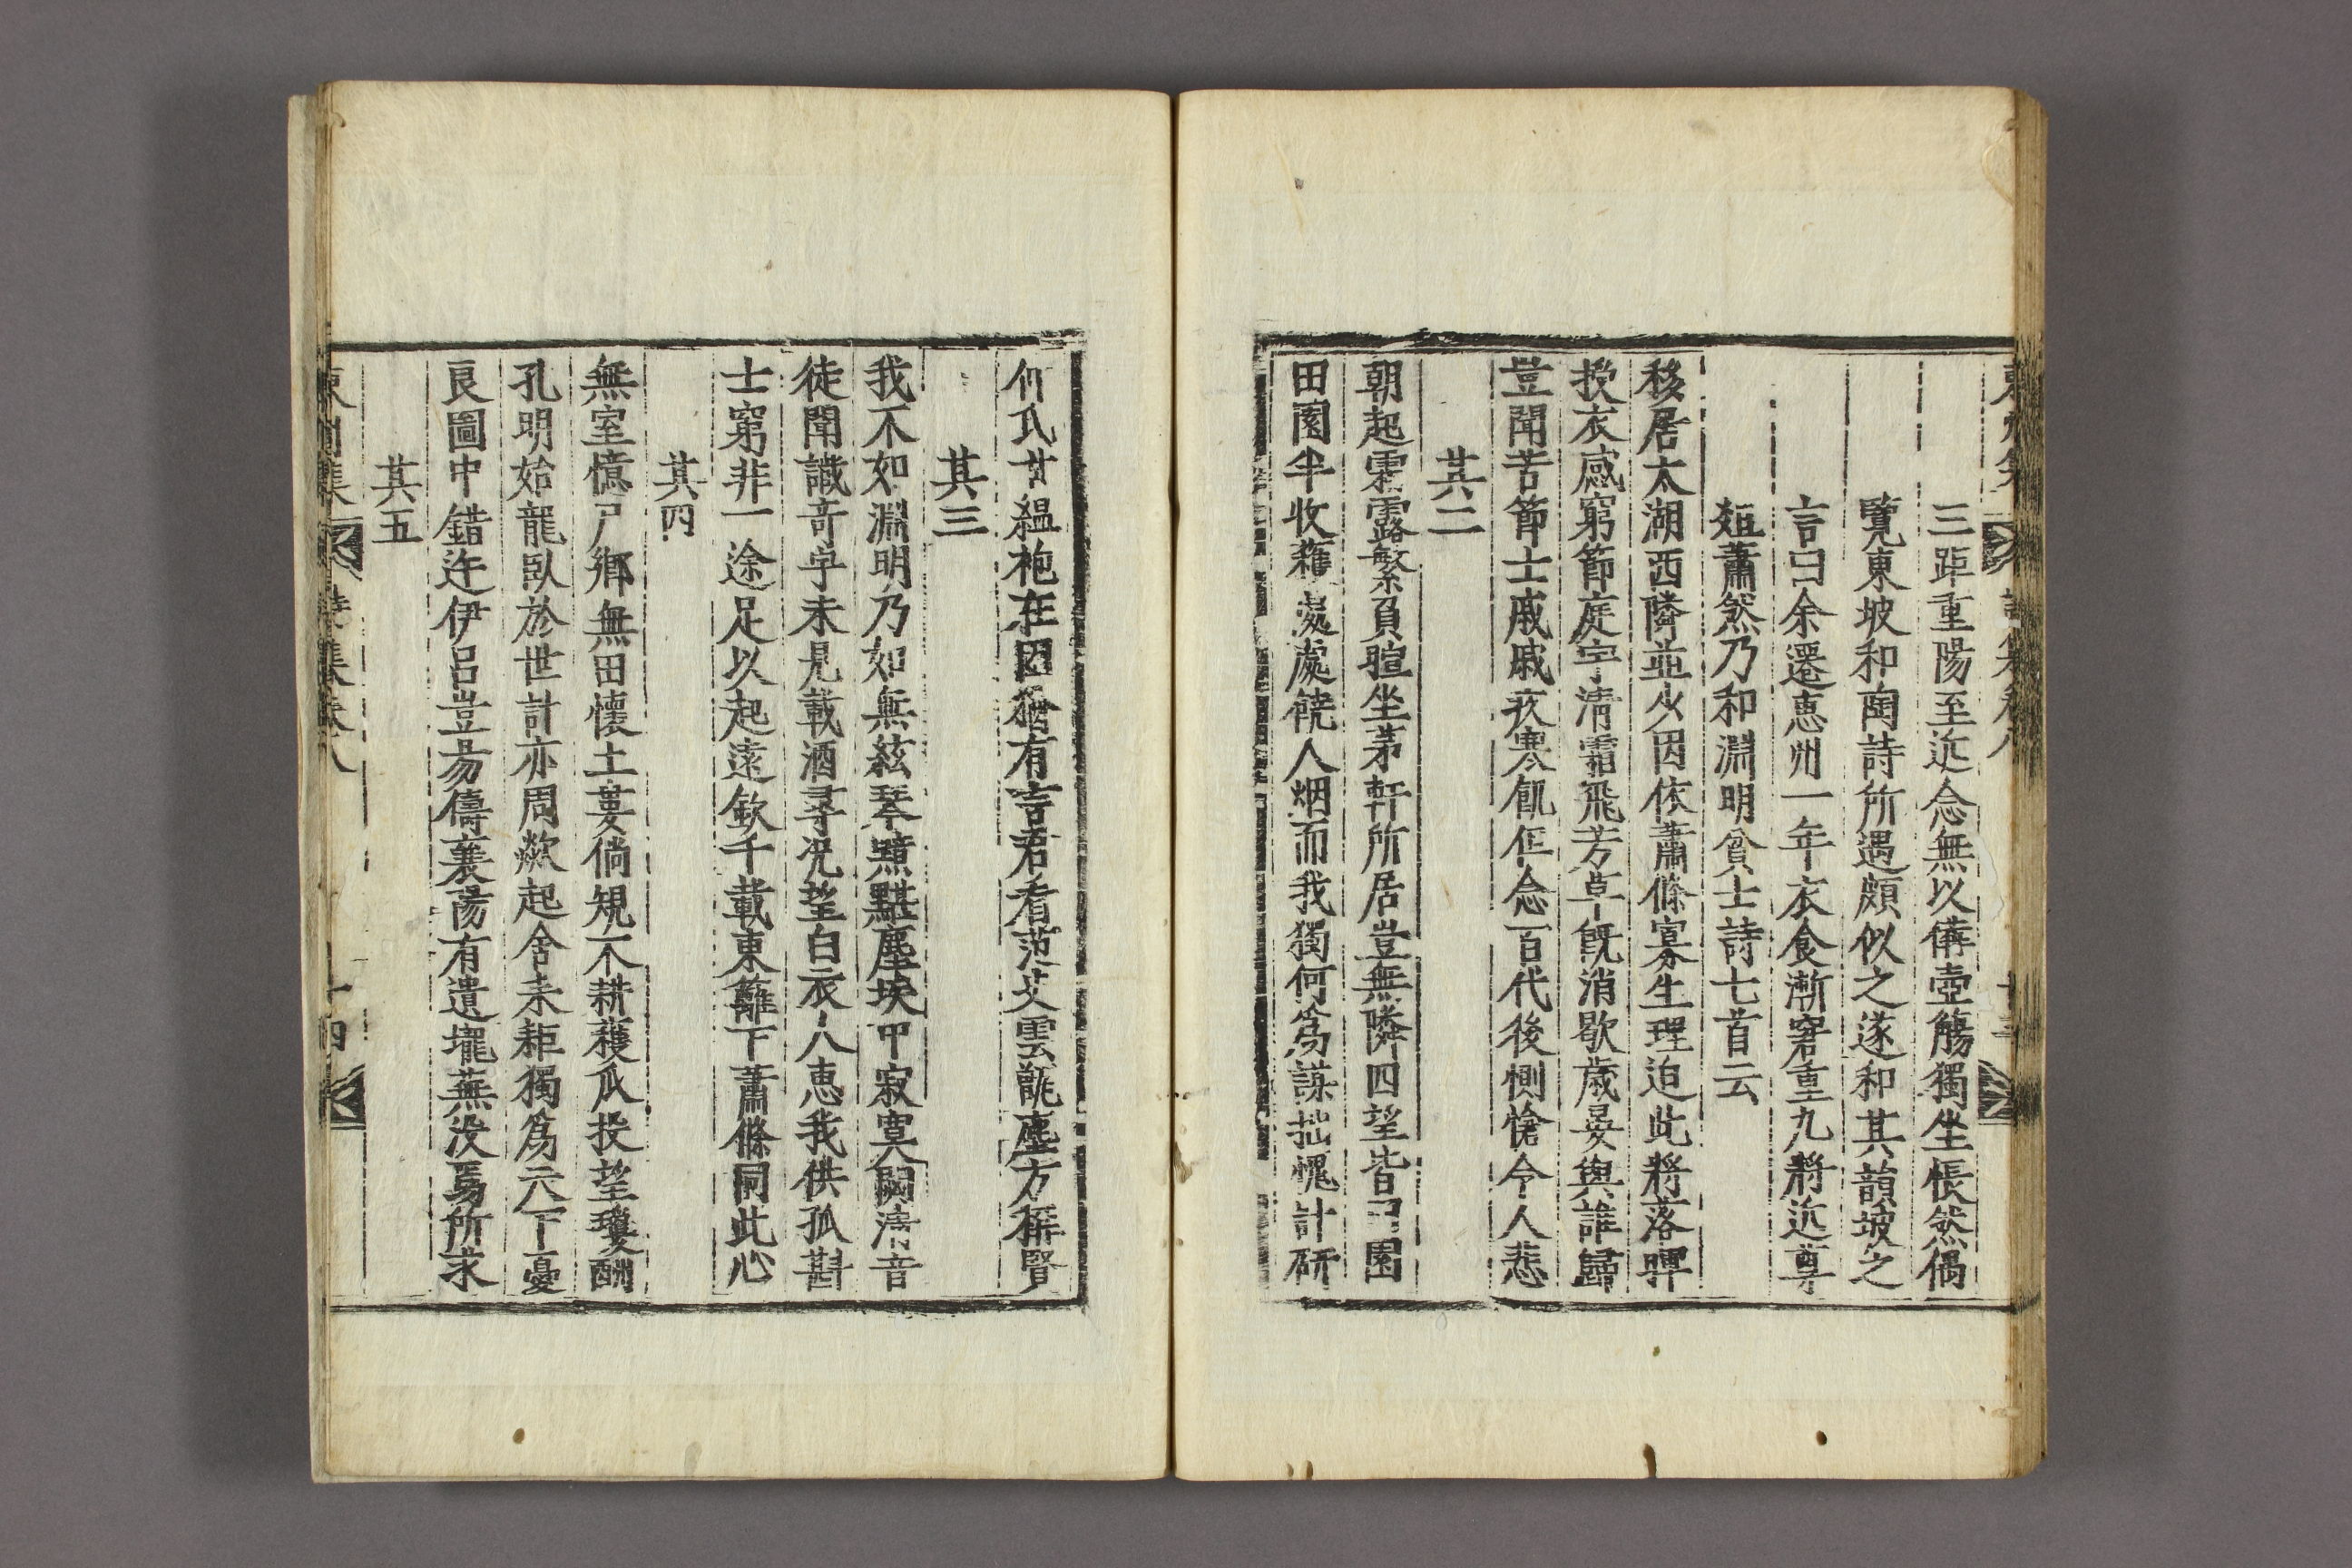 三距重陽至近念無以備壺觴獨坐悵然偶
覽東坡和陶詩所遇頗似之遂和其韻坡之
言曰余遷惠州一年衣食漸窘重九將近尊
俎蕭然乃和淵明貧士詩七首云
移居太湖西隣並少因依蕭條寡生理迫此將落暉
授衣感窮節庭宇淸霜飛芳草旣消歇歲晏與誰歸
豈聞苦節士戚戚疚寒飢但念百代後惻愴令人悲
其二
朝起霜露繁負暄坐茅軒所居豈無隣四望皆己園
田園半收穫處處饒人烟而我獨何爲謀拙愧計硏
何氏甘縕袍在困猶有言君看范艾雲甑塵方稱賢
其三
我不如淵明乃如無絃琴黯黮塵埃中寂寞闕淸音
徒聞識奇字未見載酒尋况望白衣人惠我供孤斟
士窮非一途足以起遠欽千載東籬下蕭條同此心
其四
無室憶戶鄕無田懷土蔞倘規不耕穫瓜投望瓊酬
孔明始龍臥於世計亦周歘起舍耒耟獨爲天下憂
良圖中錯迕伊呂豈易儔襄蕩有遺壠蕪沒焉所求
其五
東州集 詩集卷八 十四